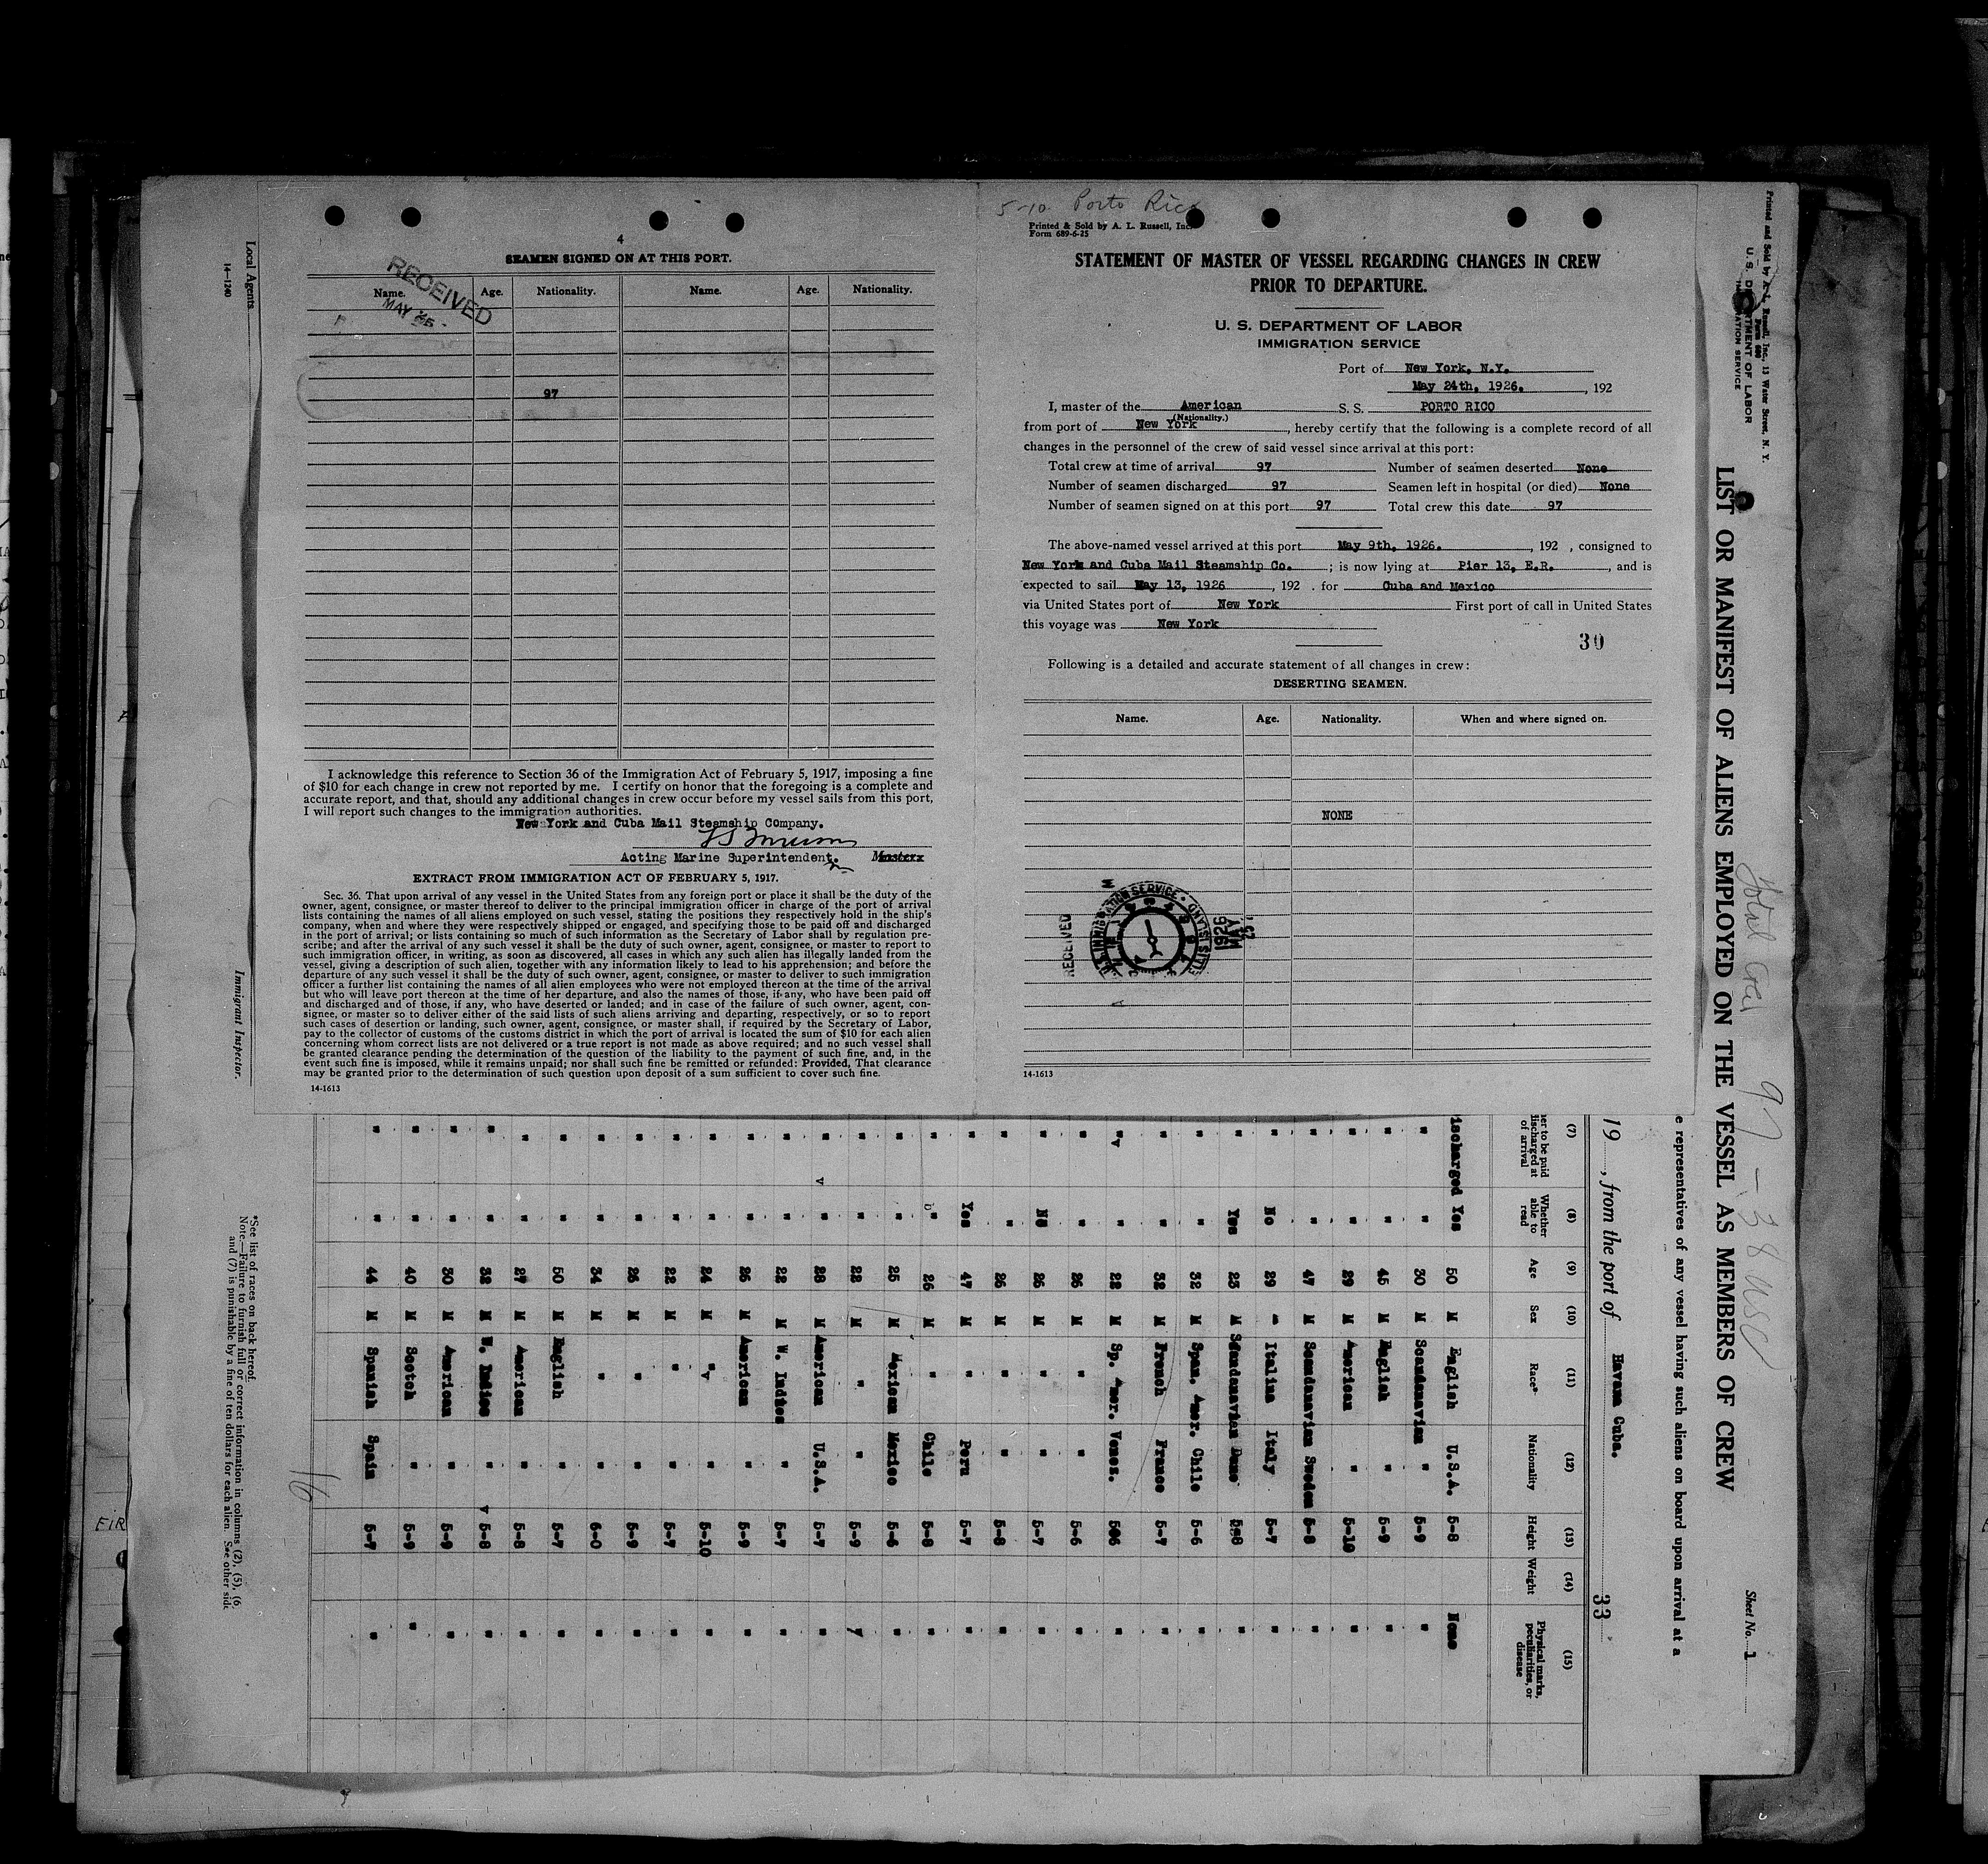 4
SEAMEN SIGNED ON AT THIS PORT.
Name. Age. Nationality. Name. Age. Nationality.
RECEIVED
MAY
97
I acknowledge this reference to Section 36 of the Immigration Act of February 5, 1917, imposing a fine
of $10 for each change in crew not reported by me. I certify on honor that the foregoing is a complete and
accurate report, and that, should any additional changes in crew occur before my vessel sails from this port,
I will report such changes to the immigration authorities.
New York and Cuba Mail Steamship Company.
Acting Marine Superintendent. Master
EXTRACT FROM IMMIGRATION ACT OF FEBRUARY 5, 1917.
Sec. 36. That upon arrival of any vessel in the United States from any foreign port or place it shall be the duty of the
owner, agent, consignee, or master thereof to deliver to the principal immigration officer in charge of the port of arrival
lists containing the names of all aliens employed on such vessel, stating the positions they respectively hold in the ship's
company, when and where they were respectively shipped or engaged, and specifying those to be paid off and discharged
in the port of arrival; or lists containing so much of such information as the Secretary of Labor shall by regulation pre-
scribe; and after the arrival of any such vessel it shall be the duty of such owner, agent, consignee, or master to report to
such immigration officer, in writing, as soon as discovered, all cases in which any such alien has illegally landed from the
vessel, giving a description of such alien, together with any information likely to lead to his apprehension; and before the
departure of any such vessel it shall be the duty of such owner, agent, consignee, or master to deliver to such immigration
officer a further list containing the names of all alien employees who were not employed thereon at the time of the arrival
but who will leave port thereon at the time of her departure, and also the names of those, if any, who have been paid off
and discharged and of those, if any, who have deserted or landed; and in case of the failure of such owner, agent, con-
signee, or master so to deliver either of the said lists of such aliens arriving and departing, respectively, or so to report
such cases of desertion or landing, such owner, agent, consignee, or master shall, if required by the Secretary of Labor,
pay to the collector of customs of the customs district in which the port of arrival is located the sum of $10 for each alien
concerning whom correct lists are not delivered or a true report is not made as above required; and no such vessel shall
be granted clearance pending the determination of the question of the liability to the payment of such fine, and, in the
event such fine is imposed, while it remains unpaid; nor shall such fine be remitted or refunded: Provided, That clearance
may be granted prior to the determination of such question upon deposit of a sum sufficient to cover such fine.
14-1613
5-10 Porto Rico
Printed & Sold by A. L. Russell, Inc.
Form 689-6-25
STATEMENT OF MASTER OF VESSEL REGARDING CHANGES IN CREW
PRIOR TO DEPARTURE.
U. S. DEPARTMENT OF LABOR
IMMIGRATION SERVICE
Port of New York, N.Y.
May 24th, 1926. , 192
I, master of the American S. S. PORTO RICO
(Nationality.)
from port of New York , hereby certify that the following is a complete record of all
changes in the personnel of the crew of said vessel since arrival at this port:
Total crew at time of arrival 97 Number of seamen deserted None
Number of seamen discharged 97 Seamen left in hospital (or died) None
Number of seamen signed on at this port 97 Total crew this date 97
The above-named vessel arrived at this port May 9th, 1926. , 192 , consigned to
New York and Cuba Mail Steamship Co. ; is now lying at Pier 13, E.R. , and is
expected to sail May 13, 1926 , 192 . for Cuba and Mexico
via United States port of New York First port of call in United States
this voyage was New York
30
Following is a detailed and accurate statement of all changes in crew:
DESERTING SEAMEN.
Name. Age. Nationality. When and where signed on.
NONE
RECEIVED
U.S. IMMIGRATION SERVICE · ELLIS ISLAND
MAY
1926
14-1613
Local Agents
14-1240
Immigrant Inspector.
*See list of races on back hereof.
Note.—Failure to furnish full or correct information in columns (2), (5), (6,
and (7) is punishable by a fine of ten dollars for each alien. See other side
Printed and Sold by A. L. Russell, Inc., 13 Water Street, N. Y.
Form 680
U. S. DEPARTMENT OF LABOR
IMMIGRATION SERVICE
Total Crew 97 - 38 USC
Sheet No. 1
LIST OR MANIFEST OF ALIENS EMPLOYED ON THE VESSEL AS MEMBERS OF CREW
e representatives of any vessel having such aliens on board upon arrival at a
19 , from the port of Havana Cuba.
33
(7) (8) (9) (10) (11) (12) (13) (14) (15)
er to be paid
discharged at
of arrival
Whether able to read
Age
Sex
Race*
Nationality
Height
Weight
Physical marks, peculiarities, or disease
ischarged Yes 50 M English U.S.A. 5-8 None
" " 30 M Scandanavian " 5-9 "
" " 45 M English " 5-9 "
" " 29 M American " 5-10 "
" " 47 M Scandanavian Sweden 5-8 "
" No 29 " Italina Italy 5-7 "
" Yes 23 M Scandanavian Dane 5-8 "
" " 32 M Span. Amer. Chile 5-6 "
" " 32 M French France 5-7 "
" " 22 M Sp. Amer. Venez. 506 "
" " 26 M " " 5-6 "
" No 26 M " " 5-7 "
" " 26 M " " 5-8 "
" Yes 47 M " Peru 5-7 "
" " 26 M " Chile 5-8 "
" " 25 M Mexican Mexico 5-6 "
" " 22 M " " 5-9 "
" " 28 M American U.S.A. 5-7 "
" " 22 M W. Indies " 5-7 "
" " 26 M American " 5-9 "
" " 24 M " " 5-10 "
" " 22 M " " 5-7 "
" " 26 M " " 5-9 "
" " 34 M " " 6-0 "
" " 50 M English " 5-7 "
" " 27 M American " 5-8 "
" " 32 M W. Indies " 5-8 "
" " 30 M American " 5-9 "
" " 40 M Scotch " 5-9 "
" " 44 M Spanish Spain 5-7 "
16
FIR